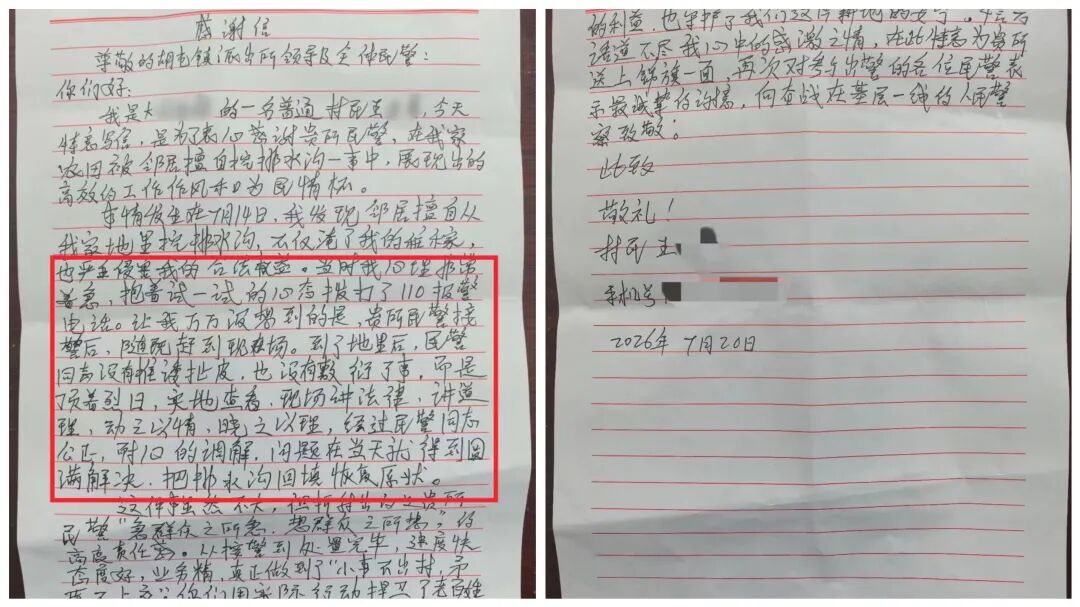 感谢信
尊敬的胡屯镇派出所领导及全体民警：
你们好：
我是大 的一名普通村民王 ，今天
特意写信，是为了衷心感谢贵所民警，在我家
农田被邻居擅自挖排水沟一事中，展现出的
高效的工作作风和为民情怀。
事情发生在7月14日，我发现邻居擅自从
我家地里挖排水沟，不仅淹了我的庄稼，
也严重侵害我的合法权益。当时我心理非常
着急，抱着试一试的心态拨打了110报警
电话。让我万万没想到的是，贵所民警接
警后，随既赶到现场。到了地里后，民警
同志没有推诿扯皮，也没有敷衍了事，而是
顶着烈日，实地查看，现场讲法律，讲道
理，动之以情，晓之以理，经过民警同志
公正，耐心的调解，问题在当天就得到圆
满解决，把排水沟回填恢复原状。
这件事虽然不大，但折射出的是贵所
民警“急群众之所急，想群众之所想”的
高度责任 。从接警到处置完毕，速度快
态度好，业务精，真正做到了“小事不出村，矛
盾不上交”你们用实际行动捍卫了老百姓
的利益，也守护了我们这片耕地的安宁。千言万
语道不尽我心中的感激之情，在此特意为贵所
送上锦旗一面，再次对参与出警的各位民警表
示最诚挚的谢意，向奋战在基层一线的人民警
察致敬；
此致
敬礼！
村民王
手机号
2026年 7月20日